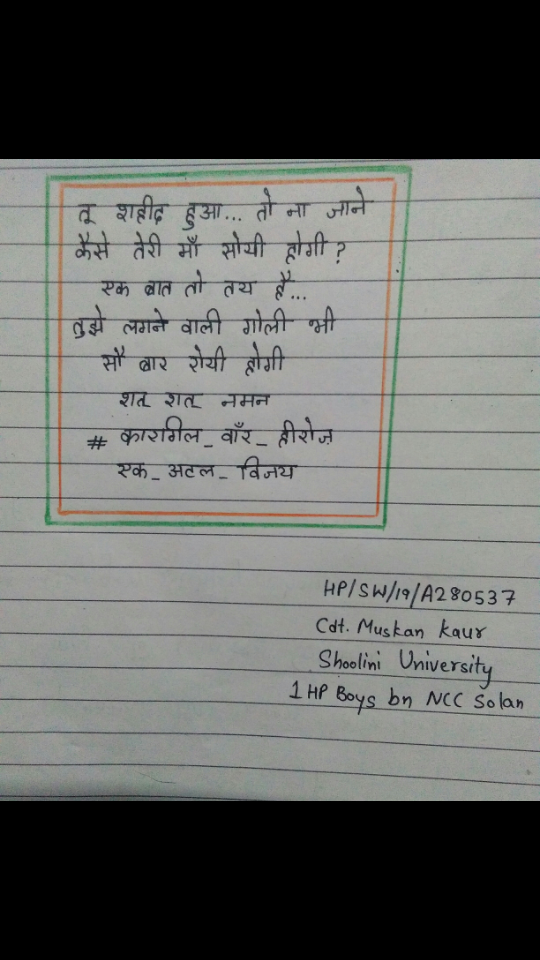 तू शहीद हुआ... तो ना जाने
कैसे तेरी माँ सोयी होगी ?
एक बात तो तय है...
तुझे लगने वाली गोली भी
सौ बार रोयी होगी
शत् शत् नमन
# कारगिल_वाँर_हीरोज़
एक_अटल_विजय
HP/SW/19/A280537
Cdt. Muskan Kaur
Shoolini University
1 HP Boys bn NCC Solan